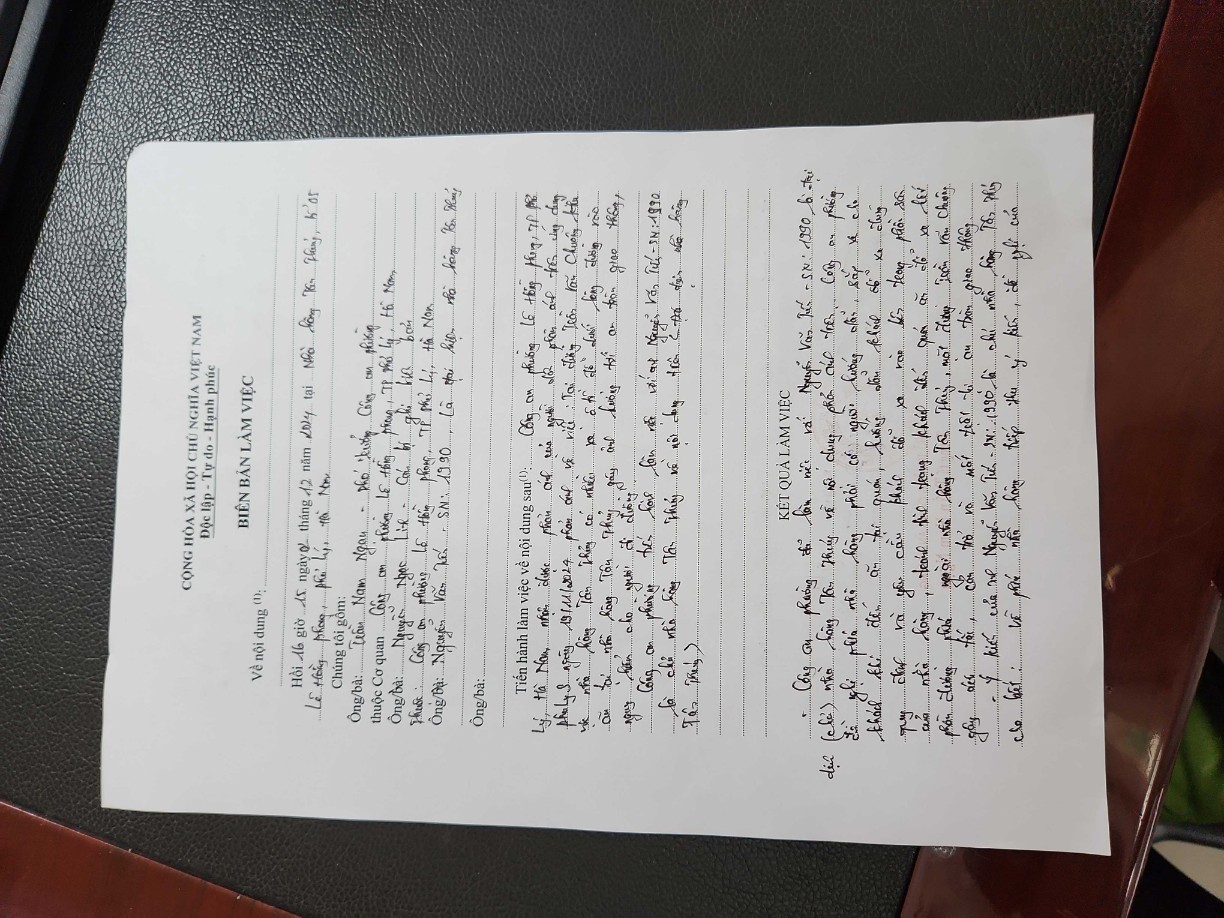 CỘNG HÒA XÃ HỘI CHỦ NGHĨA VIỆT NAM
Độc lập - Tự do - Hạnh phúc
BIÊN BẢN LÀM VIỆC
Về nội dung (1):
Hồi 16 giờ 15 ngày 2 tháng 12 năm 2024 tại Nhà hàng Tân Thủy,
Lê Hồng Phong, Phủ Lý, Hà Nam
Chúng tôi gồm:
Ông/bà: Trần Nam Ngạn - phó trưởng Công an phường
thuộc Cơ quan Công an phường Lê Hồng Phong, TP Phủ Lý, Hà Nam
Ông/bà: Nguyễn Ngọc Linh - Cán bộ ghi biên bản
thuộc: Công an phường Lê Hồng Phong, TP Phủ Lý, Hà Nam
Ông/bà: Nguyễn Văn - SN: 1990. Là đại diện nhà hàng Tân Thủy
Ông/bà:
Tiến hành làm việc về nội dung sau(1): Công an phường Lê Hồng Phong, TP Phủ
Lý, Hà Nam, nhận được phản ánh của người dân phản ánh trên ứng dụng
phulyS ngày 19/11/2024 phản ánh về việc: Tại đường Trần Văn Chuông khu
vực nhà hàng Tân Thủy có nhiều xe ô tô đỗ dưới lòng đường vào
ăn tại nhà hàng Tân Thủy gây ảnh hưởng tới an toàn giao thông,
nguy hiểm cho người đi đường.
Công an phường tiến hành làm việc với anh Nguyễn Văn - SN: 1990
là chủ nhà hàng Tân Thủy về nội dung trên (đại diện nhà hàng
Tân Thủy)
KẾT QUẢ LÀM VIỆC
- Công an phường đã làm việc với Nguyễn Văn - SN: 1990 là đại
diện (chủ) nhà hàng Tân Thủy về nội dung phản ánh trên. Công an phường
đề nghị phía nhà hàng phải có người hướng dẫn sắp xe cho
khách khi đến ăn tại quán, hướng dẫn khách đỗ xe đúng
quy định và yêu cầu khách đỗ xe vào bên trong phần sân
của nhà hàng, tránh tình trạng khách đến quán ăn đỗ xe hết
phần đường phía ngoài nhà hàng Tân Thủy, mặt đường Trần Văn Chuông
gây ách tắc, cản trở và mất trật tự an toàn giao thông.
- Ý kiến của anh Nguyễn Văn - SN: 1990 là chủ nhà hàng Tân Thủy
cho biết: Về phía nhà hàng tiếp thu ý kiến, đề nghị của